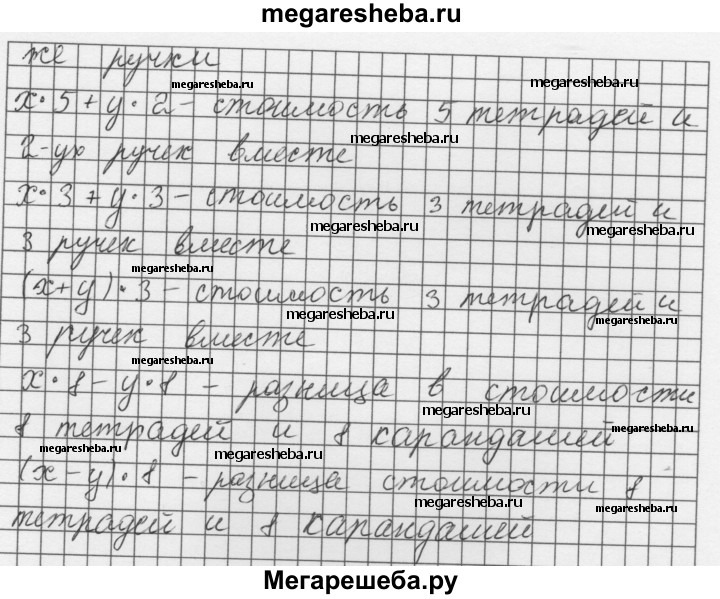 megaresheba.ru
же ручки
megaresheba.ru megaresheba.ru
x·5+y·2 – стоимость 5 тетрадей и
megaresheba.ru
2-ух ручек вместе
x·3+y·3 – стоимость 3 тетрадей и
megaresheba.ru megaresheba.ru
3 ручек вместе
megaresheba.ru
(x+y)·3 – стоимость 3 тетрадей и
megaresheba.ru megaresheba.ru
3 ручек вместе
megaresheba.ru
x·8–y·8 – разница в стоимости
megaresheba.ru megaresheba.ru
8 тетрадей и 8 карандашей
megaresheba.ru megaresheba.ru
(x–y)·8 – разница стоимости 8
megaresheba.ru megaresheba.ru
тетрадей и 8 карандашей
Мегарешеба.ру